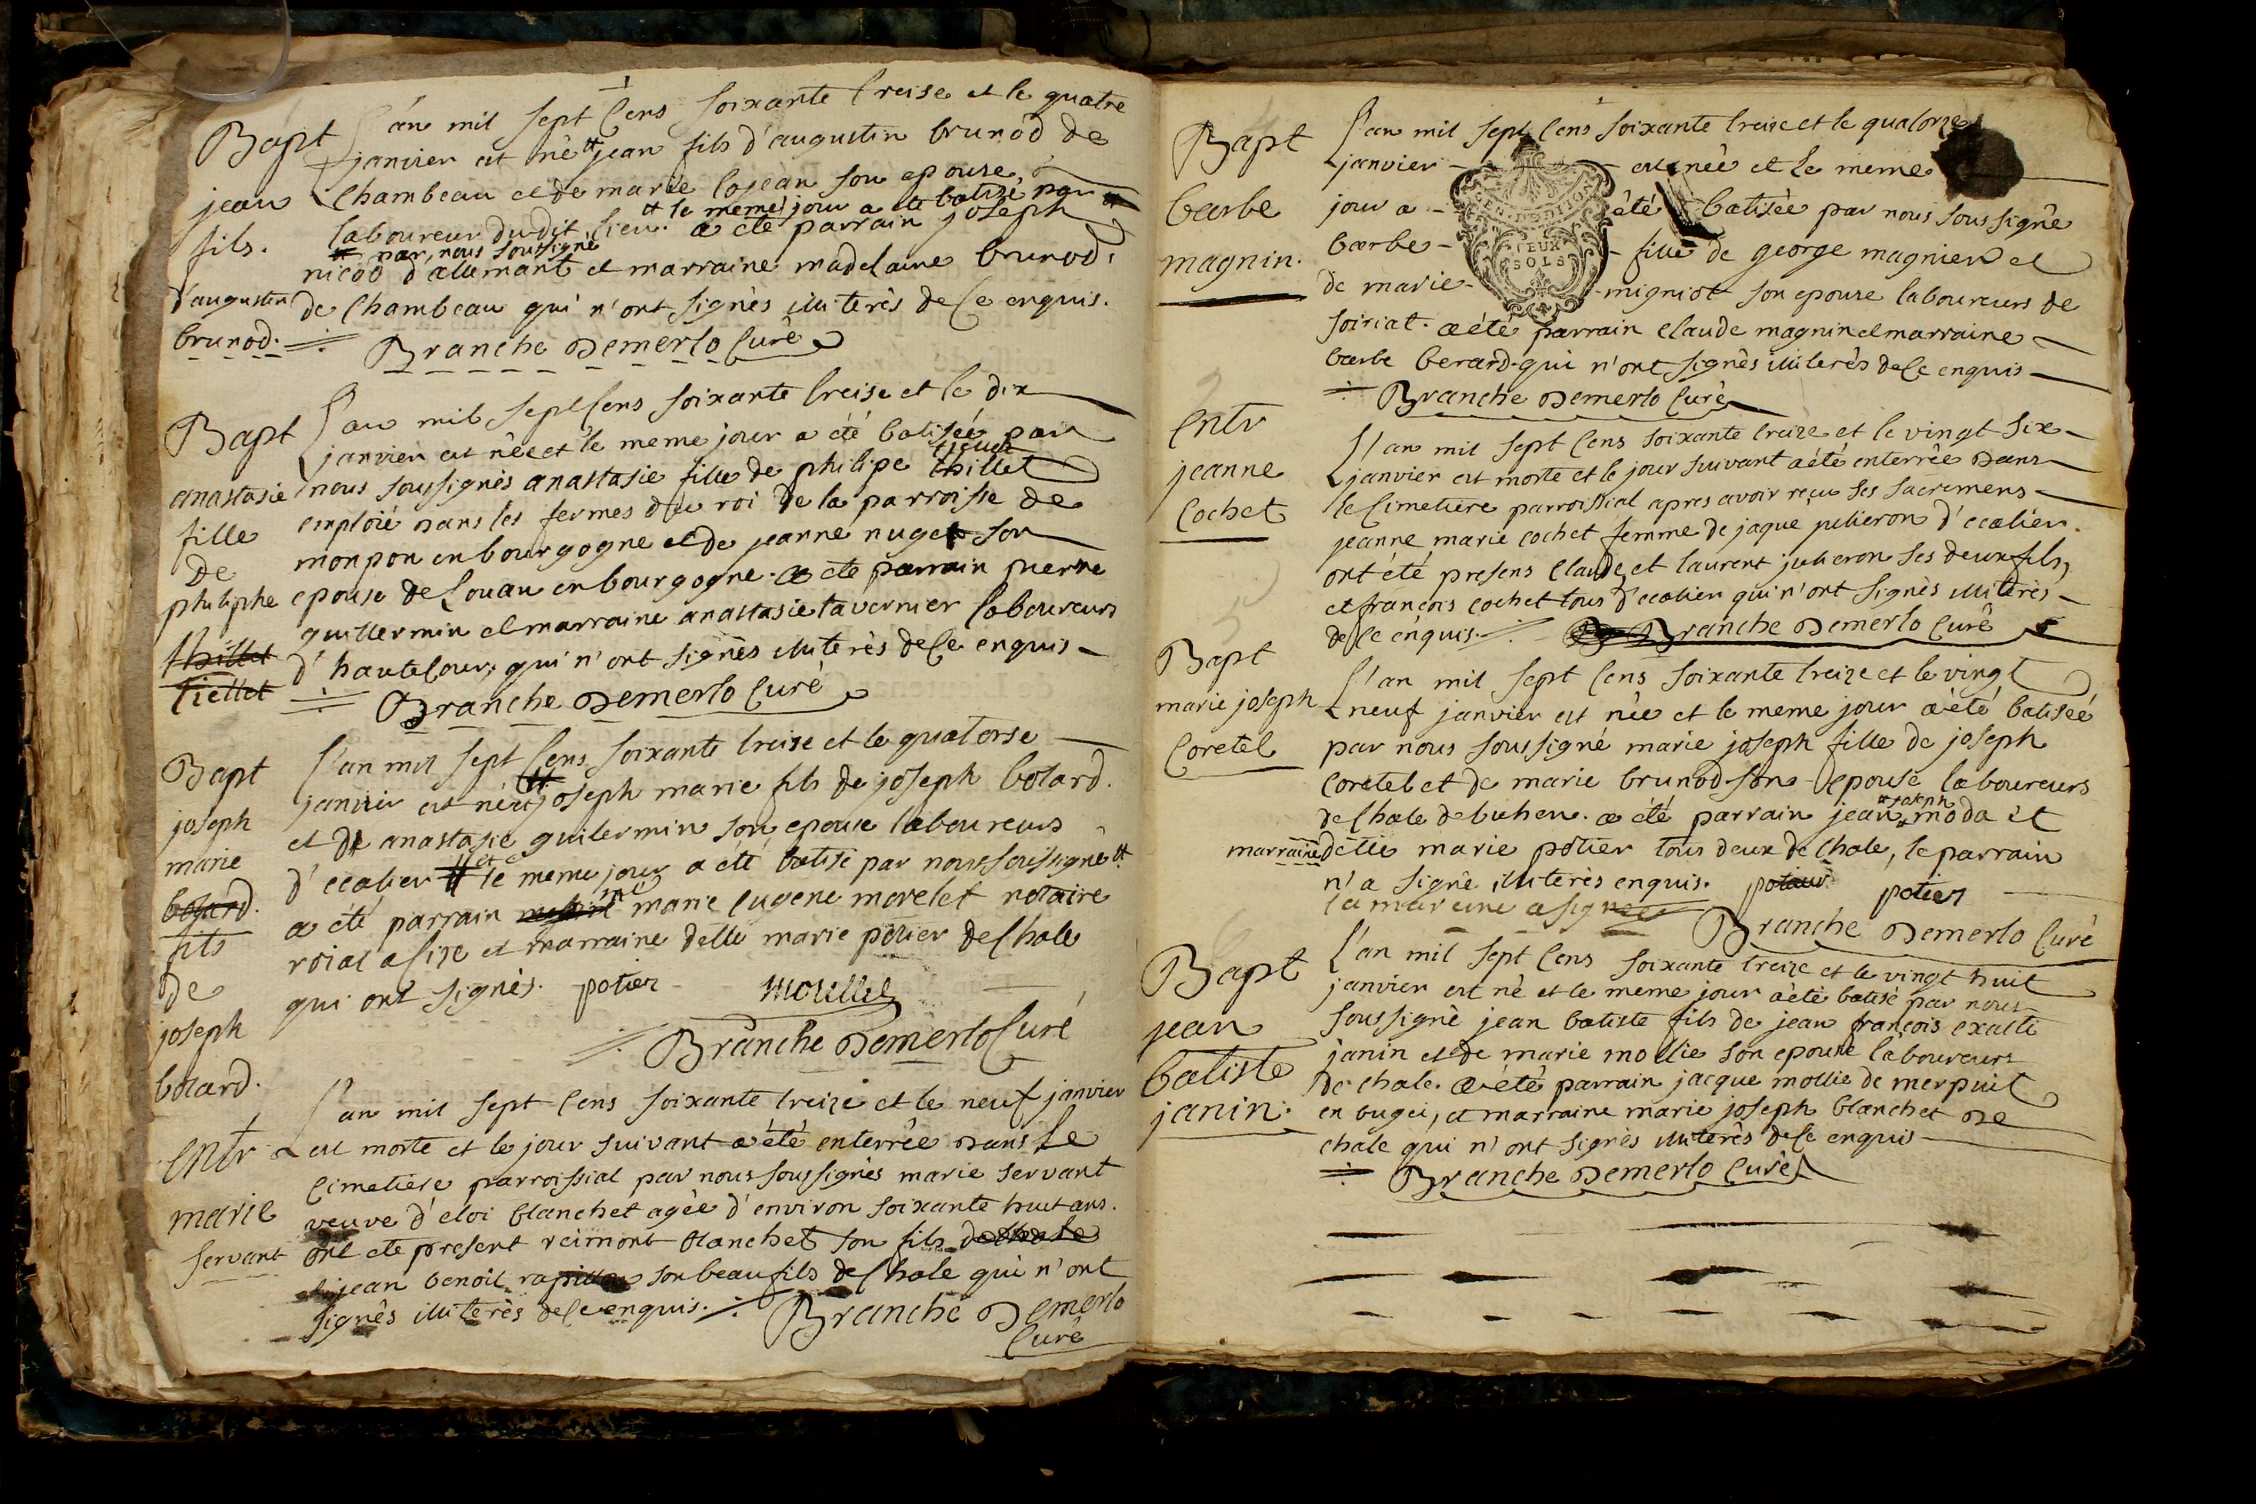 Bapt
jean
fils.
d'augustin
brunod.
L'an mil sept cens soixante treise et le quatre
janvier est né # jean fils d'augustin brunod de
Chambeau et de marie cojean son epouse,
# le meme jour a ete batisé par #
laboureur dudit lieu. a eté parrain joseph
# par nous soussigné
nicod d'allemant et marraine madelaine brunod.
de Chambeau qui n'ont signès illiterès de ce enquis.
Branche Demerlo Curé
Bapt
anastasie
fille
De
philiphe
thillet
tiellet
L'an mil sept cens soixante treise et le dix
janvier est née et le meme jour a été batisée par
nous soussignès anastasie fille de philipe thillet
emploié dans les fermes du roi de la parroisse de
monpon en bourgogne et de jeanne nuget son
epouse de Louan en bourgogne. a eté parrain pierre
guillermin et marraine anastasie tavernier laboureurs
d'hautecour, qui n'ont signès illiterès de ce enquis
Branche Demerlo Curé
Bapt
joseph
marie
botard.
fils
de
joseph
botard.
L'an mil sept cens soixante treise et le quatorse
janvier est né et joseph marie fils de joseph botard.
et de anastasie guilermin son epouse laboureurs
d'ecalier # et le meme jour a été batisé par nous soussigné #
a été parrain marie eugene morelet notaire
roial a Cize et marraine delle marie potier de Chale
qui ont signès. potier morellet
Branche Demerlo Curé
Entr
marie
servant
L'an mil sept cens soixante treize et le neuf janvier
est morte et le jour suivant a été enterrée dans le
Cimetiere parroissial par nous soussignès marie servant
veuve d'eloi blanchet agèe d'environ soixante huit ans.
ont ete present reimont blanchet son fils de chale
et jean benoit son beau fils de Chale qui n'ont
signês illiterès de ce enquis. Branche Demerlo
Curé
Bapt
barbe
magnin.
L'an mil sept cens soixante treize et le quatorze
janvier - est née et le meme
jour a - été batisèe par nous soussigné
barbe - fille de george magnien et
de marie - migniot son epouse laboureurs de
soiriat. a été parrain claude magnin et marraine
barbe berard. qui n'ont signès illiterès de ce enquis
Branche Demerlo Curé
GEN. D DIJON
DEUX
SOLS
Entr
jeanne
Cochet
L'an mil sept cens soixante treize et le vingt six
janvier est morte et le jour suivant a été enterrée dans
le Cimetiere parroissial apres avoir reçu ses sacremens
jeanne marie cochet femme de jaque julieron d'ecalier.
ont été presens claude et laurent julieron ses deux fils,
et françois cochet tous d'ecalier qui n'ont signès illiterès
de ce enquis. Branche Demerlo Curé
Bapt
marie joseph
Coretel
L'an mil sept cens soixante treize et le vingt
neuf janvier est nèe et le meme jour a été batisée
par nous soussigné marie joseph fille de joseph
Coretel et de marie brunod son epouse laboureurs
de Chale de buhen. a été parrain jean # joseph moda et
marraine delle marie potier tous deux de Chale, le parrain
n'a signé illiterès enquis. potier
la maraine a signé
Branche Demerlo Curé
Bapt
jean
batiste
janin.
L'an mil sept cens soixante treize et le vingt huit
janvier est nè et le meme jour a été batisé par nous
soussigné jean batiste fils de jean françois exalte
janin et de marie mollie son epouse laboureurs
de chale. a été parrain jacque mollie de merpuit
en bugei, et marraine marie joseph blanchet de
chale qui n'ont signès illiterês de ce enquis
Branche Demerlo Curé